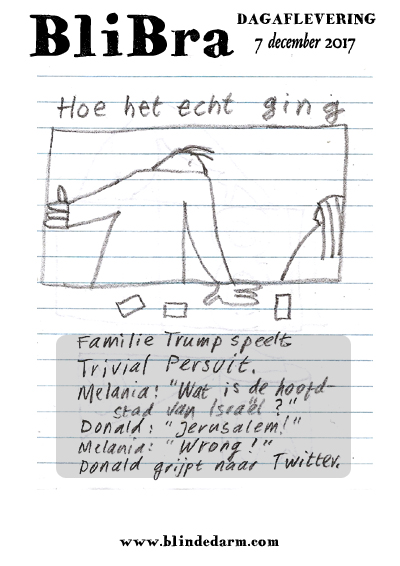 BliBra
DAGAFLEVERING
7 december 2017
Hoe het echt ging
Familie Trump speelt
Trivial Persuit.
Melania: "Wat is de hoofd-
stad van Israël ?"
Donald: "Jerusalem!"
Melania: "Wrong!"
Donald grijpt naar Twitter.
www.blindedarm.com